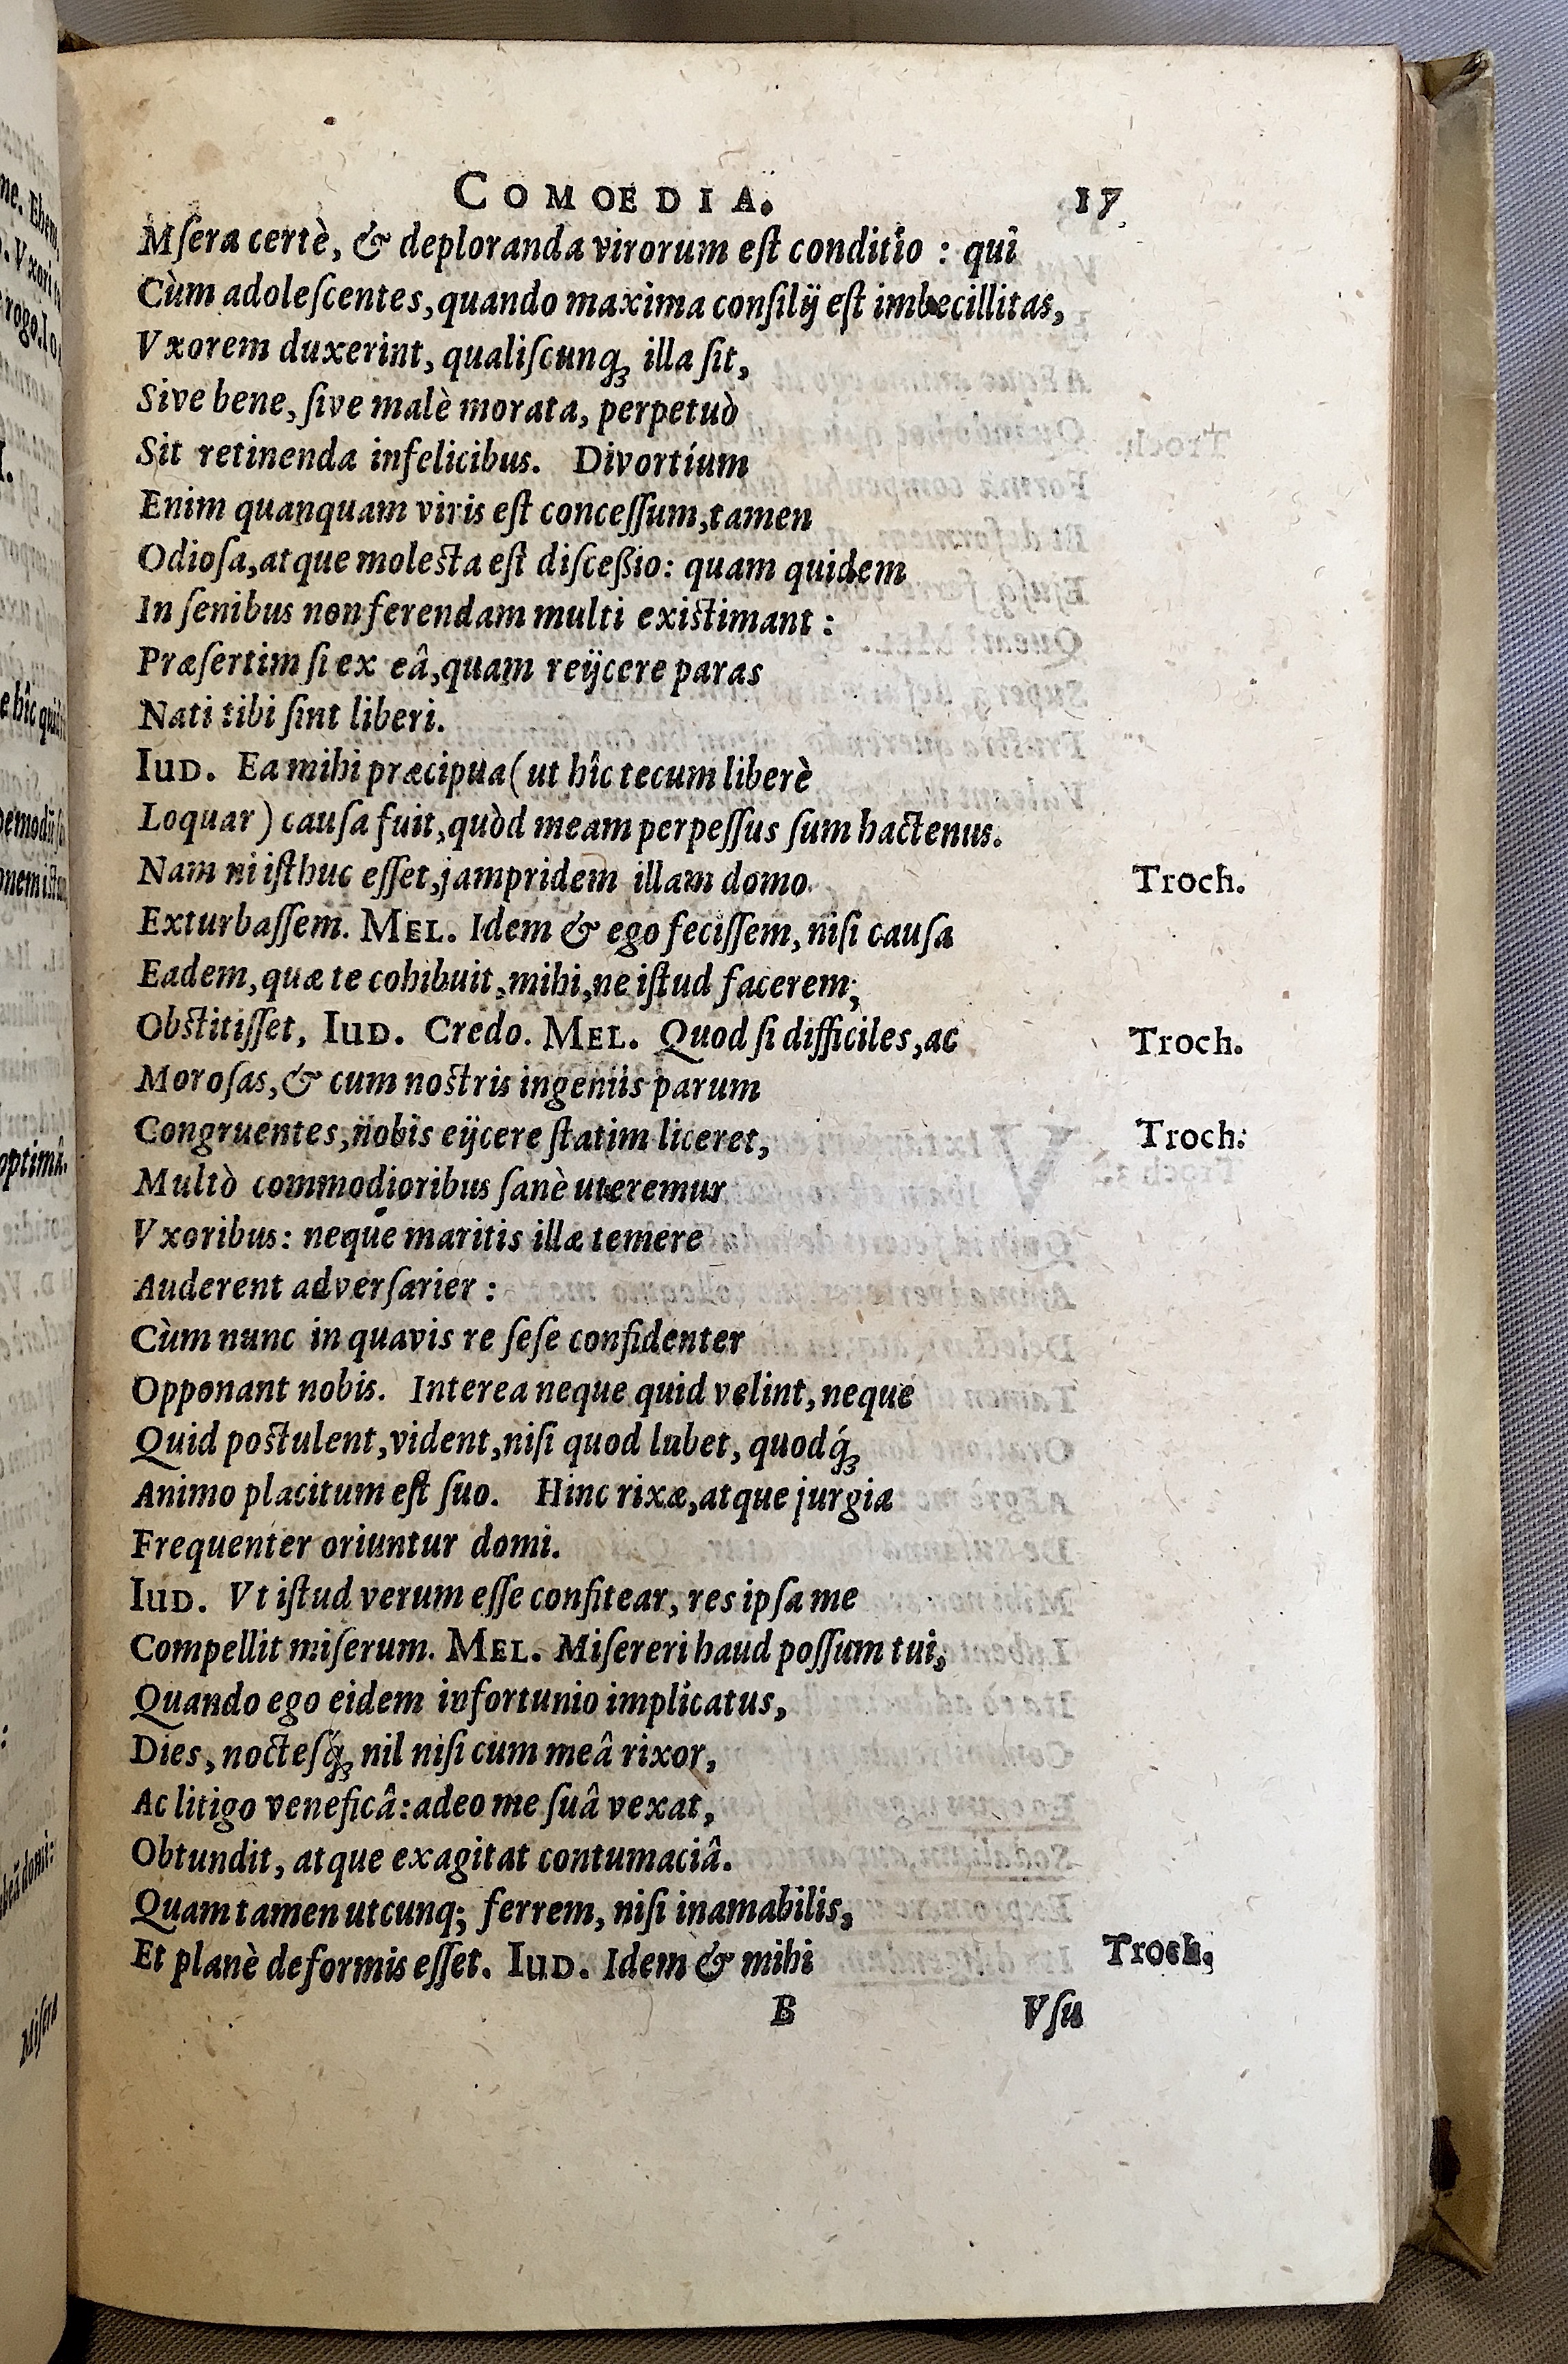 COMOEDIA. 17
Msera certè, & deploranda virorum est conditio : qui
Cùm adolescentes, quando maxima consilij est imbecillitas,
Vxorem duxerint, qualiscunq; illa sit,
Sive bene, sive malè morata, perpetuò
Sit retinenda infelicibus. Divortium
Enim quanquam viris est concessum, tamen
Odiosa, atque molesta est discessio: quam quidem
In senibus non ferendam multi existimant :
Præsertim si ex eâ, quam reijcere paras
Nati tibi sint liberi.
IUD. Ea mihi præcipua ( ut hîc tecum liberè
Loquar ) causa fuit, quòd meam perpessus sum hactenus.
Nam ni isthuc esset, jampridem illam domo Troch.
Exturbassem. MEL. Idem & ego fecissem, nisi causa
Eadem, quæ te cohibuit, mihi, ne istud facerem;
Obstitisset, IUD. Credo. MEL. Quod si difficiles, ac Troch.
Morosas, & cum nostris ingeniis parum
Congruentes, nobis eijcere statim liceret, Troch:
Multò commodioribus sanè uteremur
Vxoribus: neque maritis illæ temere
Auderent adversarier :
Cùm nunc in quavis re sese confidenter
Opponant nobis. Interea neque quid velint, neque
Quid postulent, vident, nisi quod lubet, quodq́;
Animo placitum est suo. Hinc rixæ, atque jurgia
Frequenter oriuntur domi.
IUD. Vt istud verum esse confitear, res ipsa me
Compellit miserum. MEL. Misereri haud possum tui,
Quando ego eidem infortunio implicatus,
Dies, noctesq́; nil nisi cum meâ rixor,
Ac litigo veneficâ: adeo me suâ vexat,
Obtundit, atque exagitat contumaciâ.
Quam tamen utcunq; ferrem, nisi inamabilis,
Et planè deformis esset. IUD. Idem & mihi Troch.
B Vsu